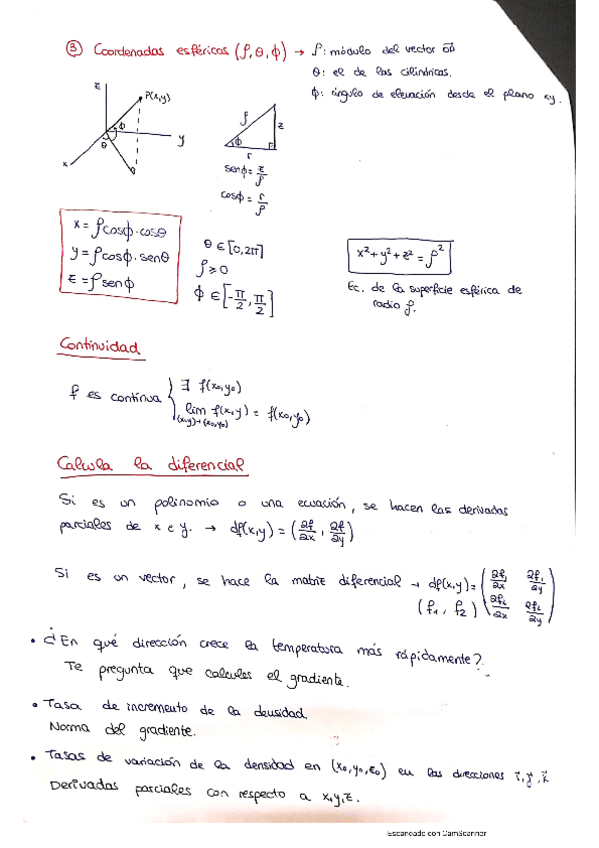 ③ Coordenadas esféricas (ρ, θ, ϕ) → ρ: módulo del vector
θ: el de las cilíndricas.
ϕ: ángulo de elevación desde el plano xy.
z
P(x,y)
ϕ
θ
y
x
ρ
z
ϕ
r
senϕ = z/ρ
cosϕ = r/ρ
x = ρcosϕ·cosθ
y = ρcosϕ·senθ
z = ρsenϕ
θ ∈ [0,2π]
ρ ≥ 0
ϕ ∈ [-π/2, π/2]
x² + y² + z² = ρ²
Ec. de la superficie esférica de
radio ρ.
Continuidad
f es continua { ∃ f(x₀,y₀)
lim f(x,y) = f(x₀,y₀)
(x,y)→(x₀,y₀)
Calcula la diferencial
Si es un polinomio o una ecuación, se hacen las derivadas
parciales de x e y. → df(x,y) = (∂f/∂x, ∂f/∂y)
Si es un vector, se hace la matriz diferencial → df(x,y) = (∂f₁/∂x ∂f₁/∂y
(f₁, f₂) ∂f₂/∂x ∂f₂/∂y)
• ¿En qué dirección crece la temperatura más rápidamente?
Te pregunta que calcules el gradiente.
• Tasa de incremento de la densidad.
Norma del gradiente.
• Tasas de variación de la densidad en (x₀,y₀,z₀) en las direcciones i⃗, j⃗, k⃗
Derivadas parciales con respecto a x,y,z.
Escaneado con CamScanner